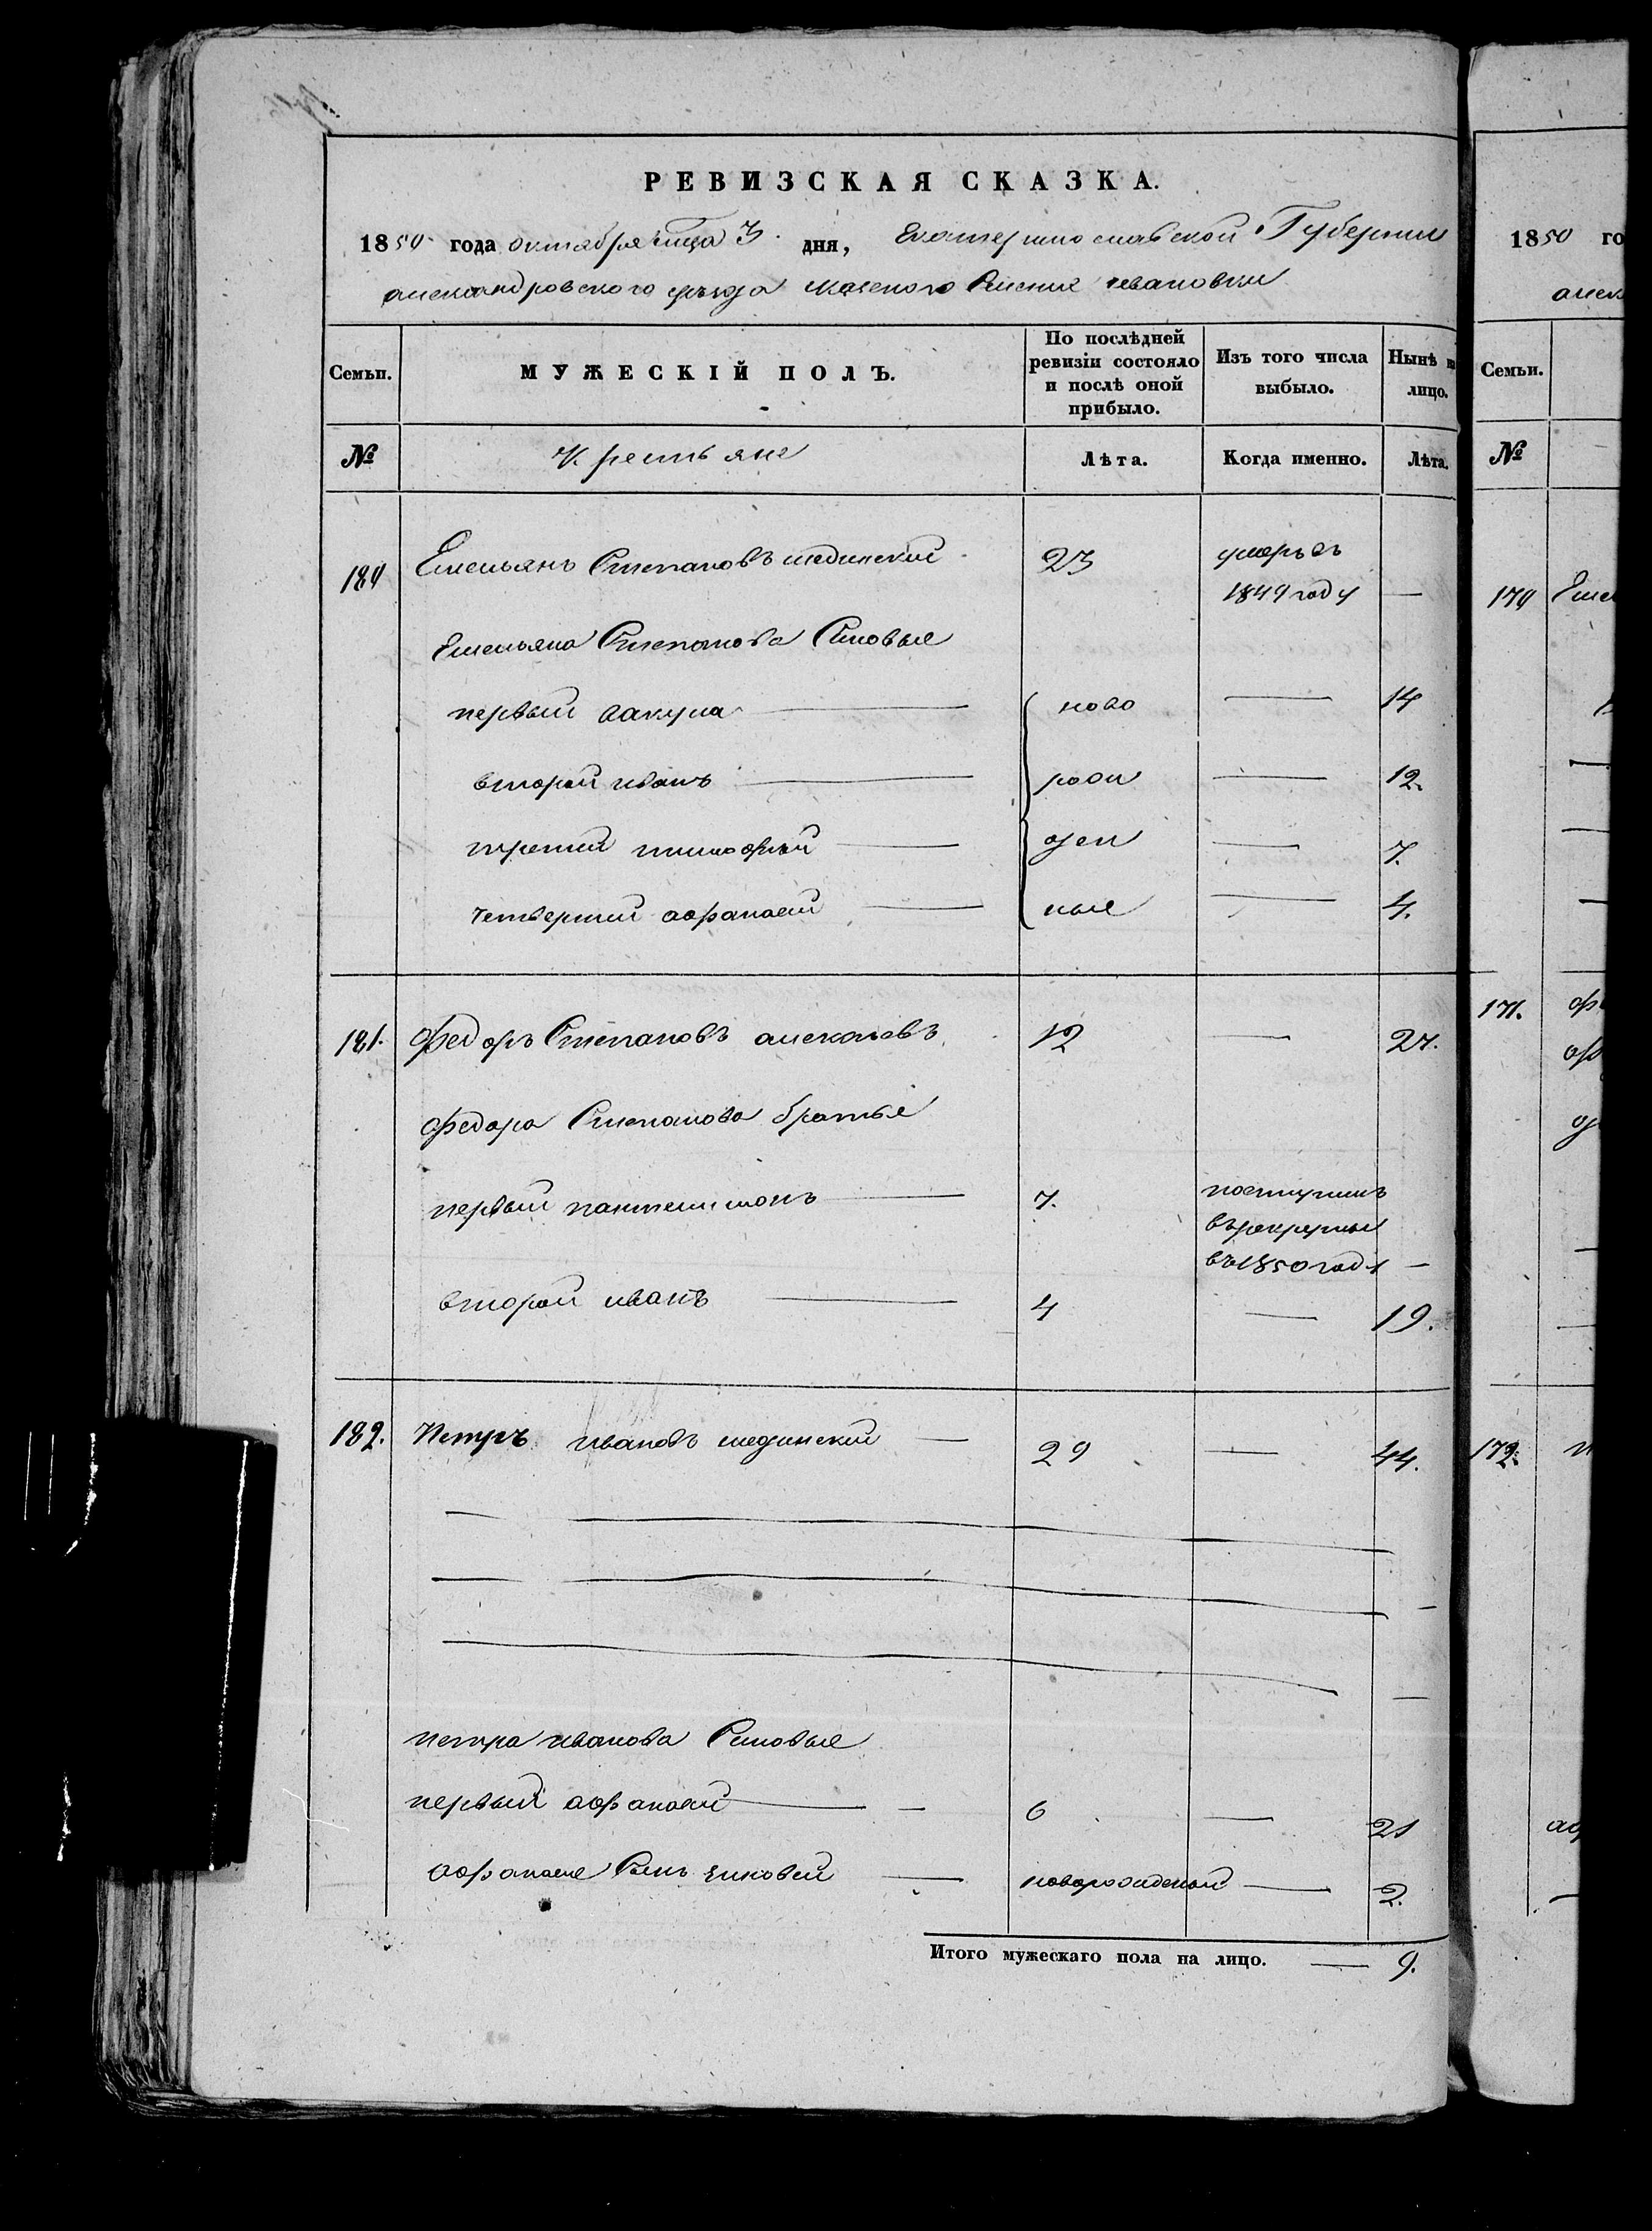 РЕВИЗСКАЯ СКАЗКА.
1850 года октября месяца 3 дня, Екатеринославской Губернии
александровского уезда Ивановки
Семьи. МУЖЕСКІЙ ПОЛЪ. По послѣдней ревизіи состояло и послѣ оной прибыло. Изъ того числа выбыло. Нынѣ на лицо.
№ Крестьяне Лѣта. Когда именно. Лѣта.
180 Емельянъ Степановъ 23 умеръ въ
1849 году —
Емельяна Степанова Сыновья
первый вакула — ново — 14
второй иванъ — рож — 12.
третий тимофей — ден — 7.
четвертий афанасий — ные — 4.
181. Федоръ Степановъ 12 — 27.
Федора Степанова братья
первый пантелимонъ — 7. поступилъ
въ рекруты
въ 1850 году —
второй иванъ — 4 — 19.
182. Петръ ивановъ — 29 — 44.
петра иванова Сыновья
первый афанасий — 6 — 21
афанасия Сынъ зиновий — новорожденый — 2.
Итого мужескаго пола на лицо. — 9.
1850 го
алек
Семьи.
№
170 Еме
171.
172.